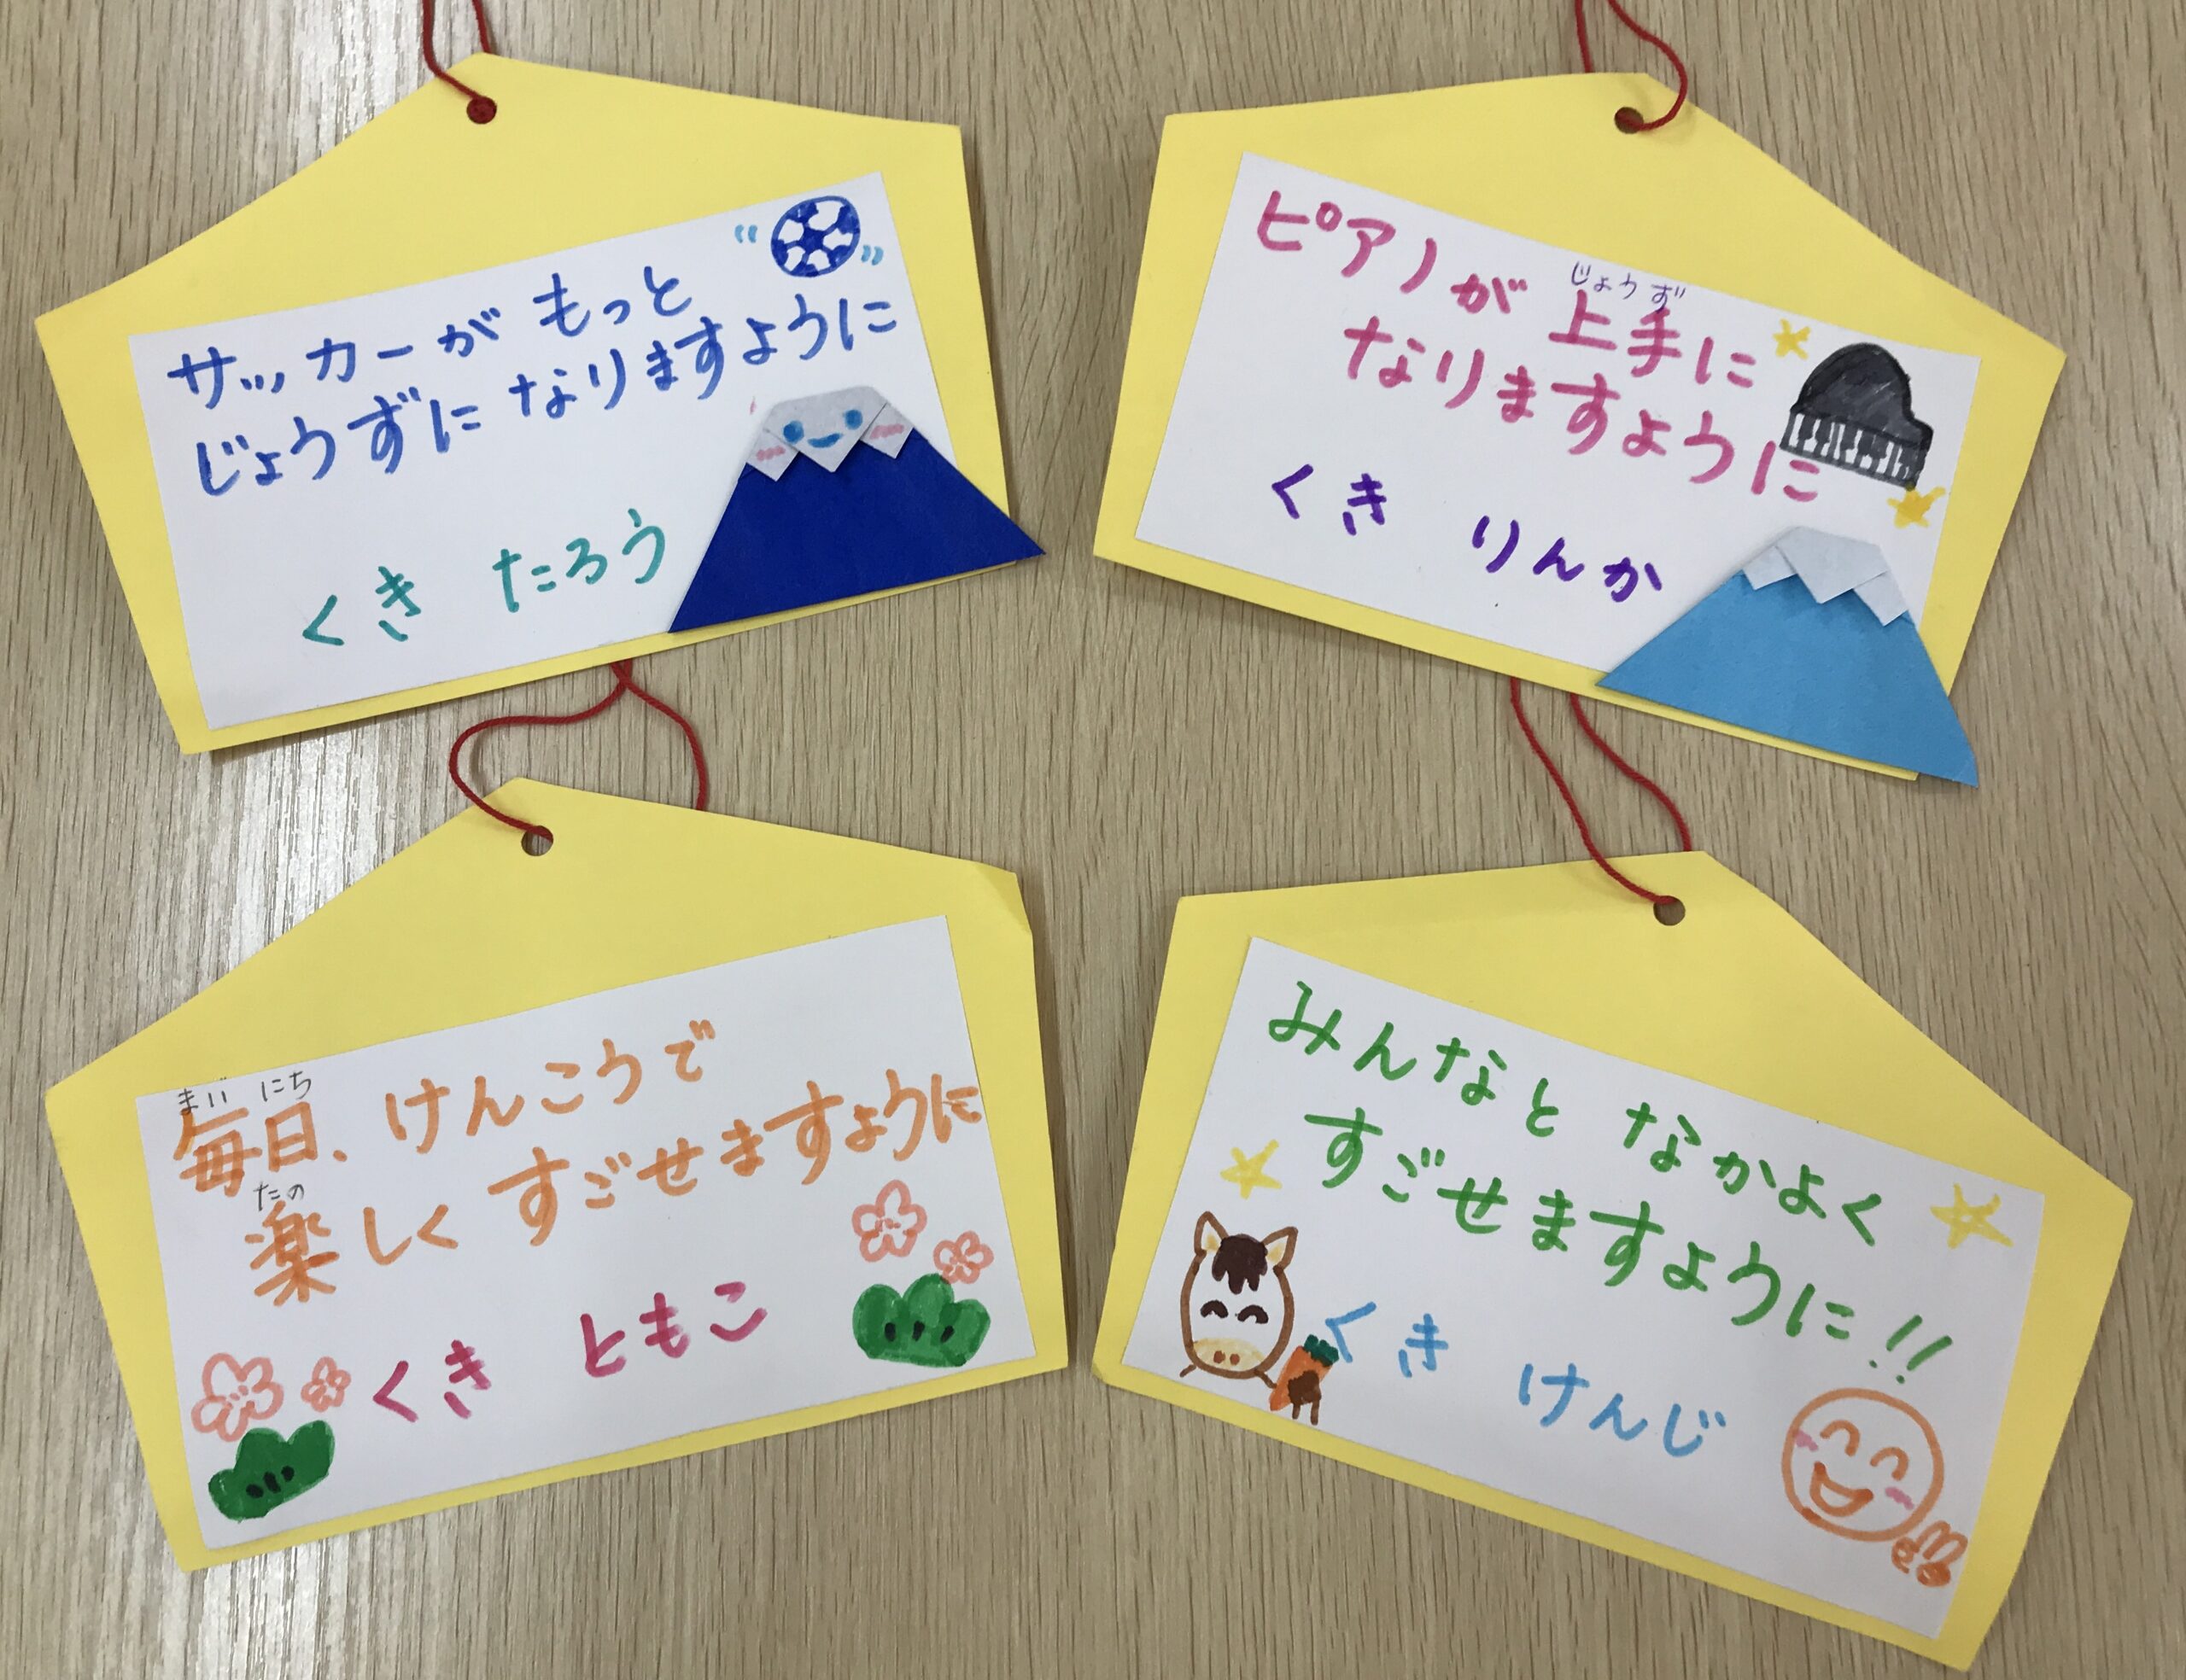 サッカーが もっと
じょうずに なりますように
くき たろう
ピアノが 上手に
じょうず
なりますように
くき りんか
まい にち
毎日、けんこうで
たの
楽しく すごせますように
くき ともこ
みんなと なかよく
すごせますように!!
くき けんじ